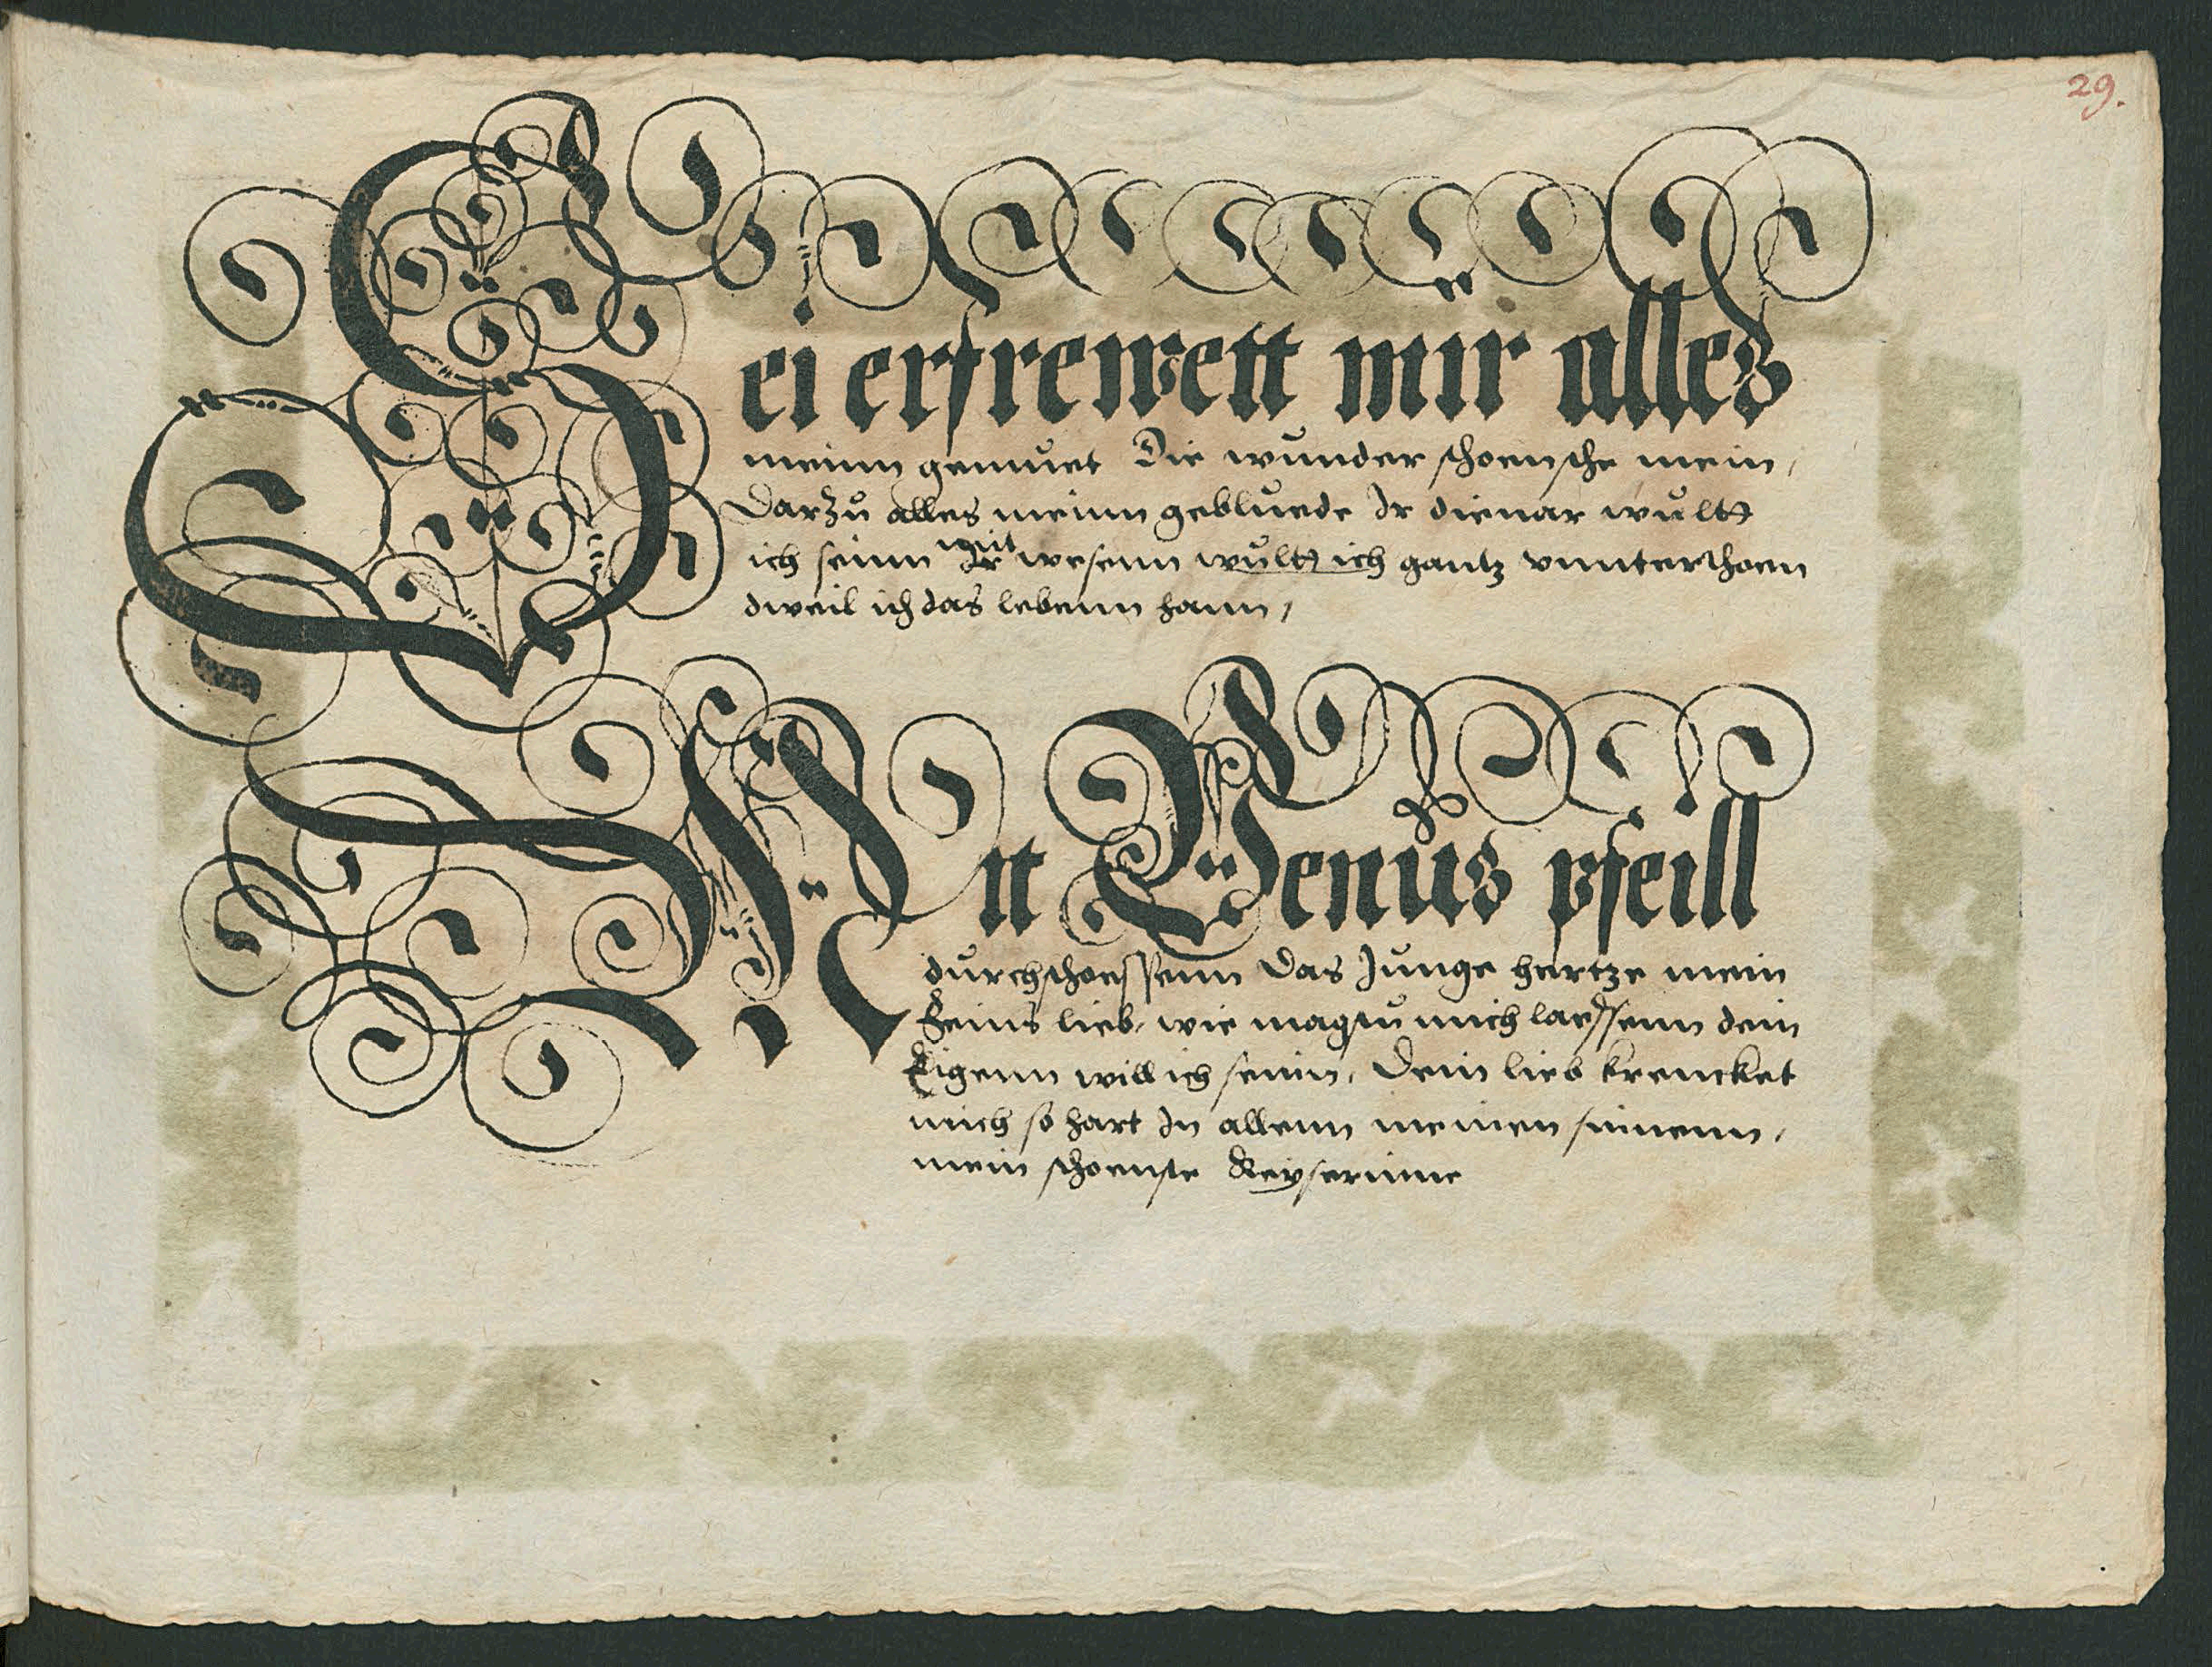 29.
Sei erfrewett mir alles
meinn gemuet Die wunder schoensche mein,
Darzu alles meinn gebluede Ir dienar wultt
ich seinn mit Ir wesenn wultt ich gantz vnnterthoen
dweil ich das lebenn hann,
Mit Venus pfeill
durchschoessenn Das Junge hertze mein
Feins lieb, wie magtu mich laessenn dein
Eigenn will ich seinn, Dein lieb krencket
mich so hart In allenn meinen sinnenn,
mein schoenste Keyserinne